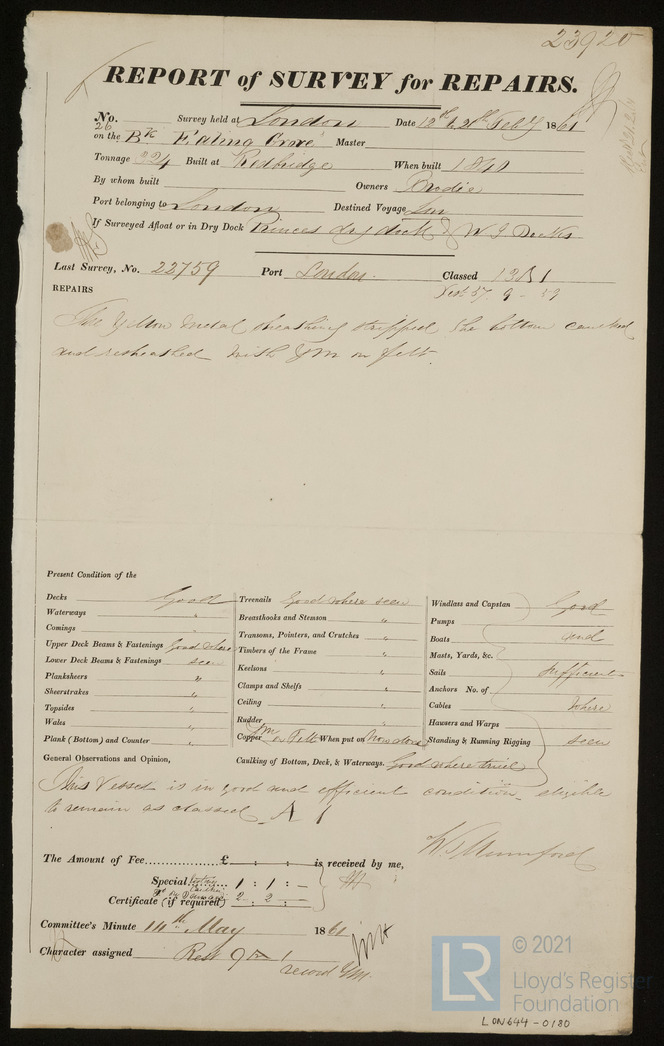 23920
REPORT of SURVEY for REPAIRS.
No. 26 Survey held at London Date 12th & 21st Feby 1861
on the Bk Ealing Grove Master
Tonnage 324 Built at Redbridge When built 1840
By whom built Owners Brodie
Port belonging to London Destined Voyage
If Surveyed Afloat or in Dry Dock Princes dry dock & W I Docks
Last Survey, No. 22759 Port London Classed 13 1
57. 9 - 59
REPAIRS
The Yellow metal sheathing stripped, the bottom caulked
and resheathed with YM on felt.
Present Condition of the
Decks Good
Waterways "
Comings "
Upper Deck Beams & Fastenings Good where
Lower Deck Beams & Fastenings seen
Planksheers "
Sheerstrakes "
Topsides "
Wales "
Plank (Bottom) and Counter "
Treenails Good where seen
Breasthooks and Stemson "
Transoms, Pointers, and Crutches "
Timbers of the Frame "
Keelsons "
Clamps and Shelfs "
Ceiling "
Rudder "
Copper YM on Felt When put on Now done
Windlass and Capstan Good
Pumps
Boats and
Masts, Yards, &c.
Sails sufficient
Anchors No. of
Cables where
Hawsers and Warps
Standing & Running Rigging seen
General Observations and Opinion, Caulking of Bottom, Deck, & Waterways. Good where tried
This Vessel is in good and efficient condition eligible
to remain as classed A 1
W. Mumford
The Amount of Fee £ : : is received by me,
Special 1 : 1 : –
Certificate (if required) 2 : 2 : –
Committee's Minute 14th May 1861
Character assigned Rest 9 A 1
record YM.
LR © 2021
Lloyd's Register
Foundation
LON644-0180